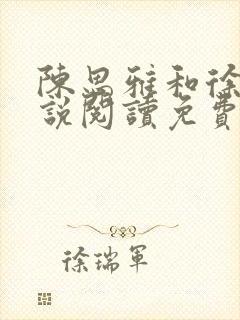 陳思雅和徐
說閱讀免費
徐瑞軍